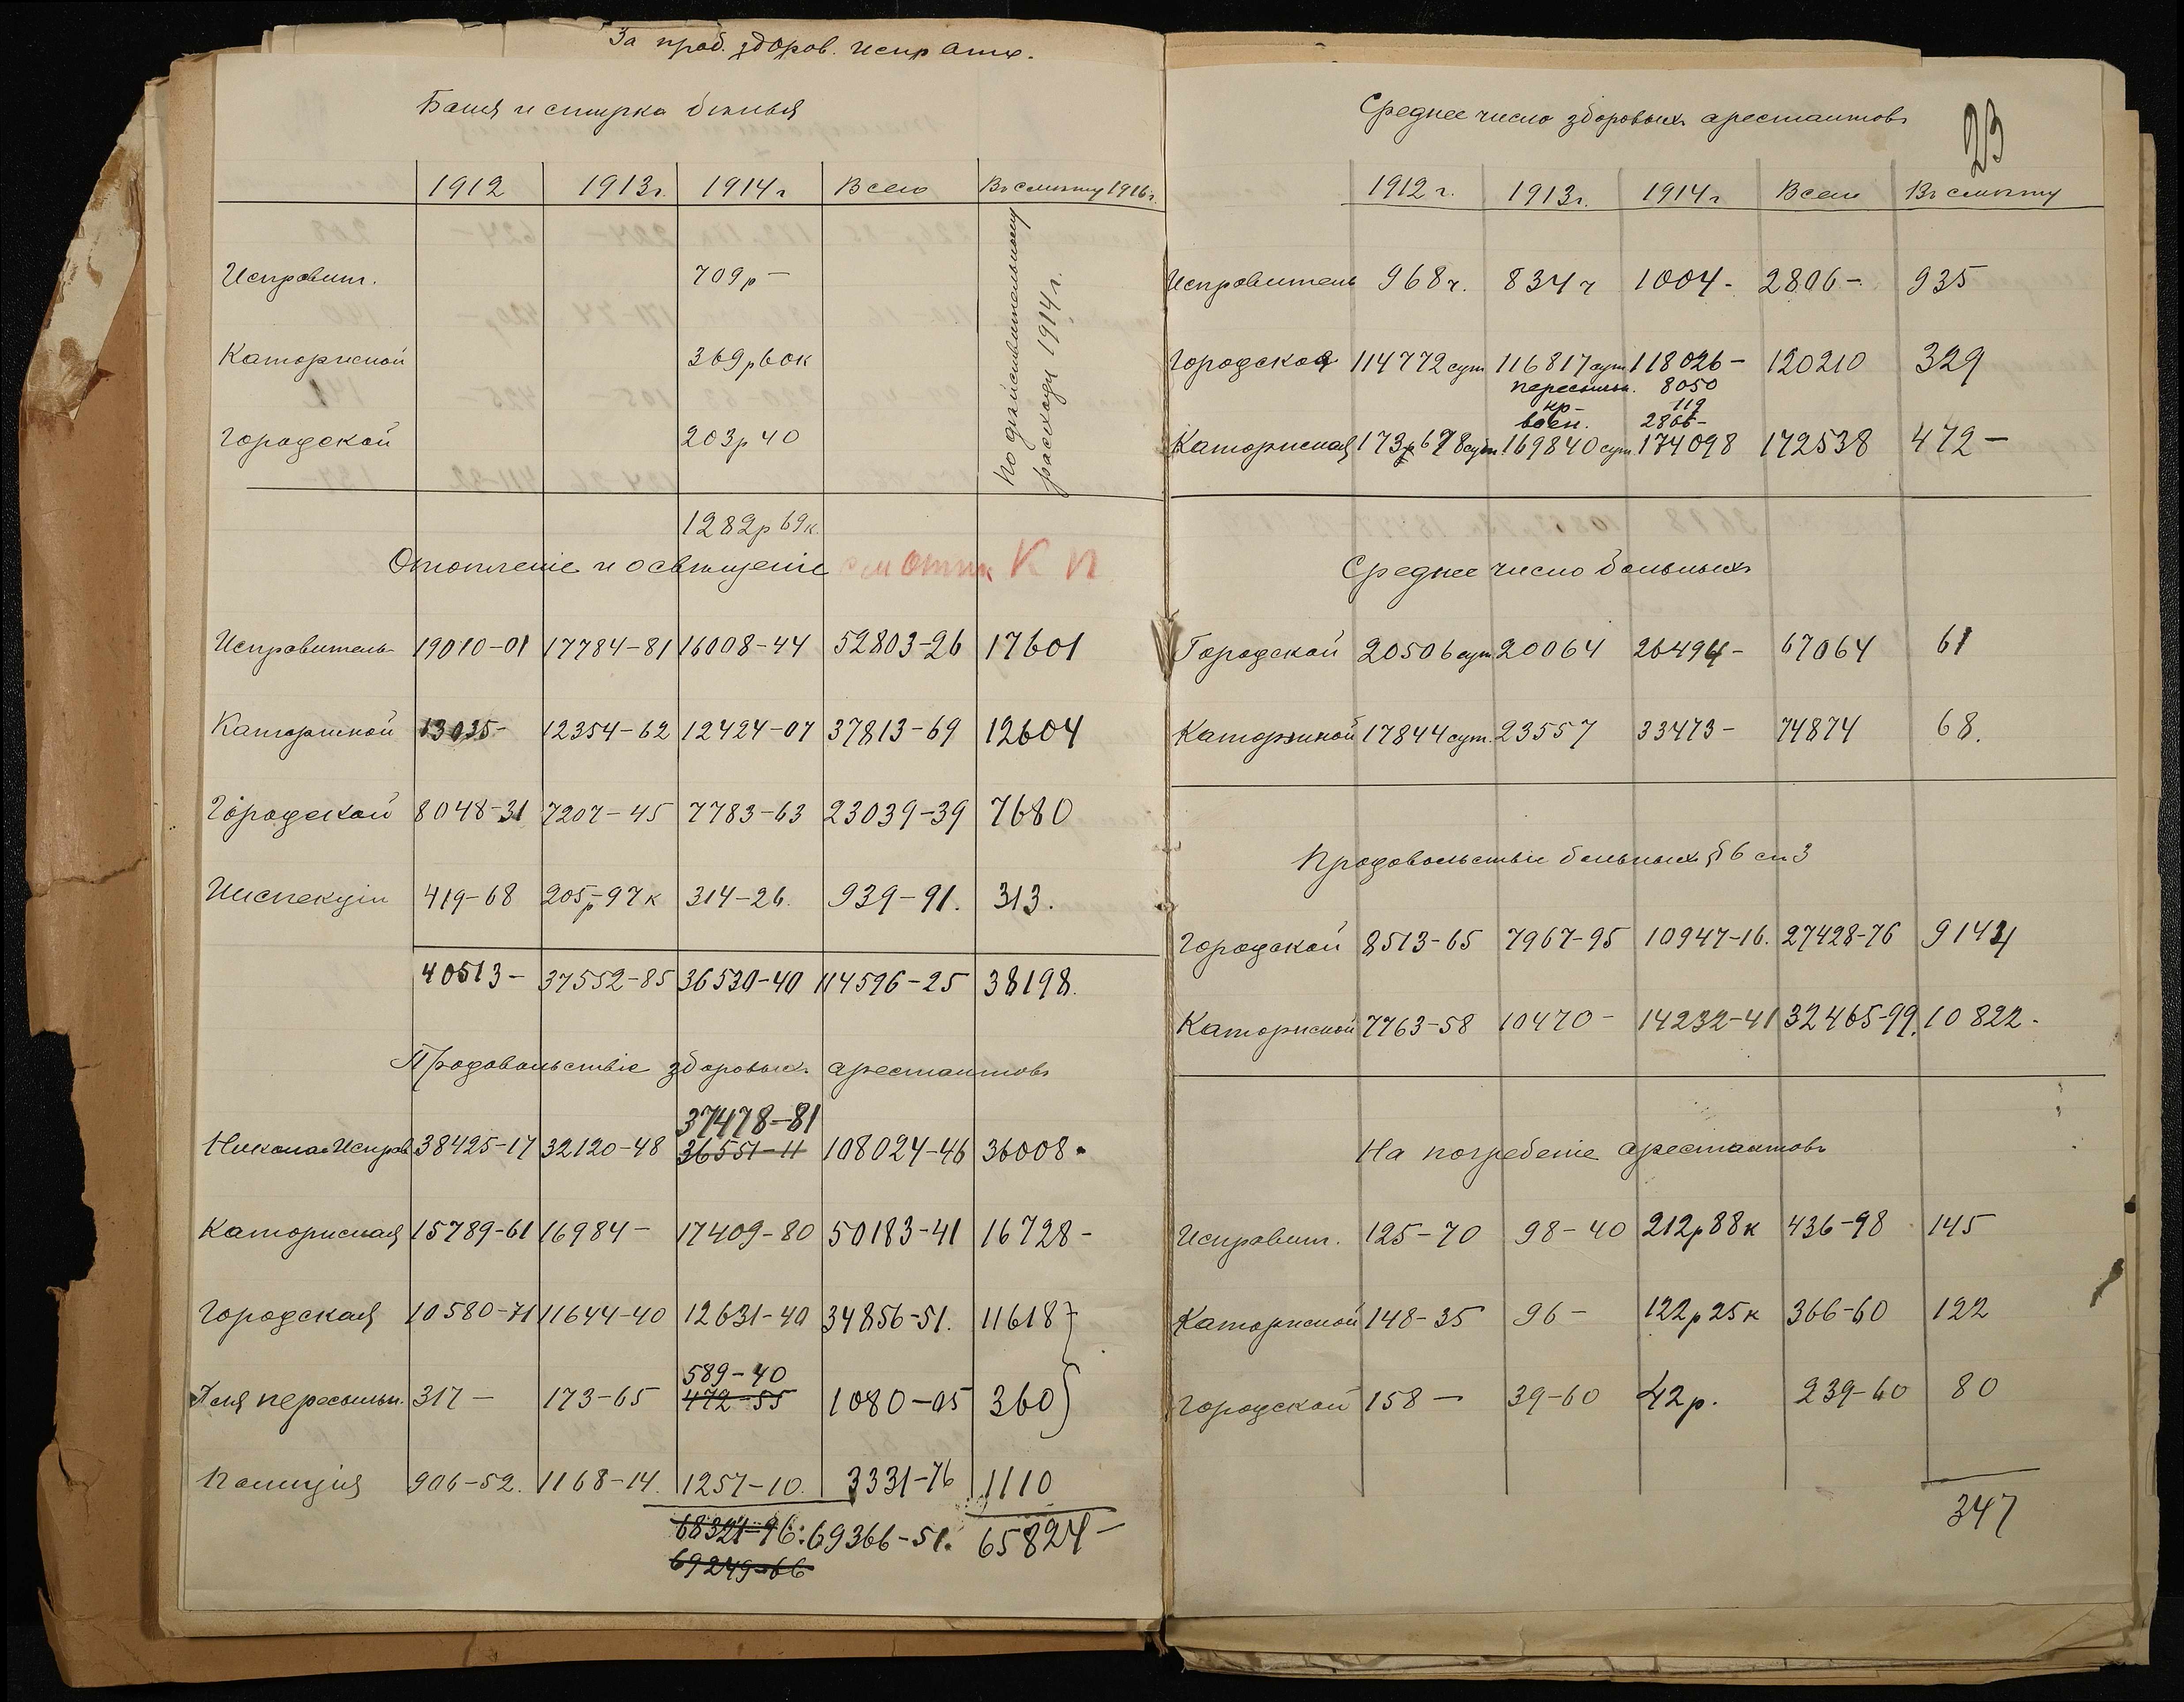 За прод. здоров. испр аты.
Баня и стирка бѣлья
1912 1913г. 1914г Всего Въ смѣту 1916г.
Исправит. 709р —
Каторжной 369р 60к
Городской 203р 40
По дѣйствительному
расходу 1914г.
1282р 69к.
Отопленіе и освѣщеніе К П
Исправитель 19010-01 17784-81 16008-44 52803-26 17601
Каторжной 13035- 12354-62 12424-07 37813-69 12604
Городской 8048-31 7207-45 7783-63 23039-39 7680
Инспекціи 419-68 205р-97к 314-26. 939-91. 313.
40513- 37552-85 36530-40 114596-25 38198.
Продовольствіе здоровыхъ арестантовъ
37478-81
Никола Исправ 38425-17 32120-48 36551-11 108024-46 36008
Каторжная 15789-61 16984- 17409-80 50183-41 16728-
Городская 10580-71 11644-40 12631-40 34856-51. 11618
589-40
Для пересыльн. 317- 173-65 472-55 1080-05 360
Полиція 906-52. 1168-14. 1257-10. 3331-76 1110
68321-96: 69366-51. 65824-
69249-66
23
Среднее число здоровыхъ арестантовъ
1912г. 1913г. 1914г Всего Въ смѣту
Исправитель 968ч. 834ч 1004- 2806- 935
Городской 114772 сут 116817 сут 118026- 120210 329
пересыльн. 8050
кр- 119
воен. 2866-
Каторжная 173678 сут. 169840 сут. 174098 172538 472-
Среднее число больныхъ
Городской 20506 сут 20064 26494- 67064 61
Каторжной 17844 сут. 23557 33473- 74874 68.
Продовольствіе больныхъ § 6 ст 3
Городской 8513-65 7967-95 10947-16. 27428-76 9143
Каторжной 7763-58 10470- 14232-41 32465-99. 10822-
На погребеніе арестантовъ
Исправит. 125-70 98-40 212р 88к 436-98 145
Каторжной 148-35 96- 122р 25к 366-60 122
Городской 158- 39-60 42р. 239-60 80
347